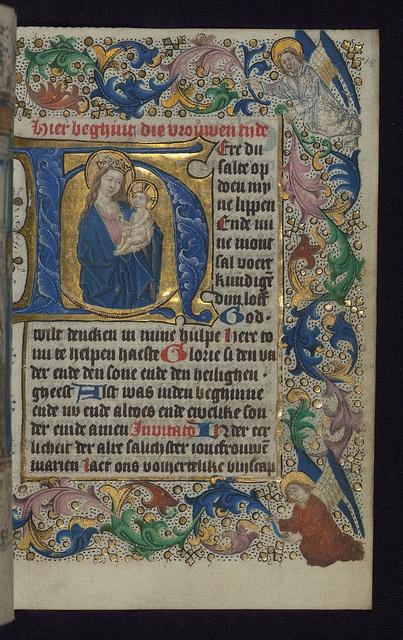 Hier beghint die vrouwen tide
Ere du
salte op
doen my
ne lippen
Ende mi
ne mont
sal voert
kundigē
dyn loff
God
wilt dencken in mine hulpe Here to
mi te helpen haeste Glorie si den va
der ende den sone ende den heilighen
gheest Alst was inden beghinne
ende nu ende altoes ende ewelike son
der einde amen Invitato IN der eer
licheit der alre salichster ioncfrouwe
marien Laet ons